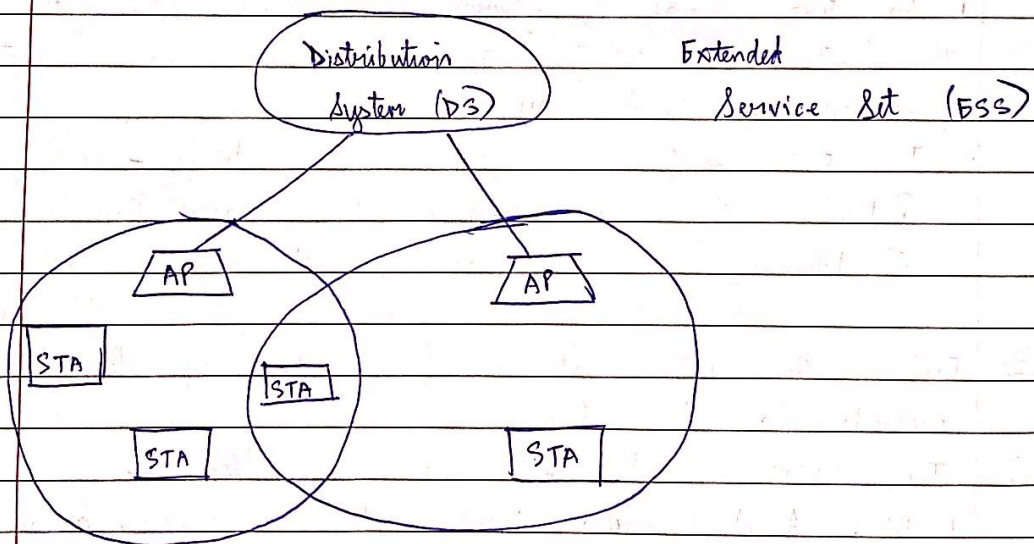 Distribution
System (DS)
Extended
Service Set (ESS)
AP
AP
STA
STA
STA
STA